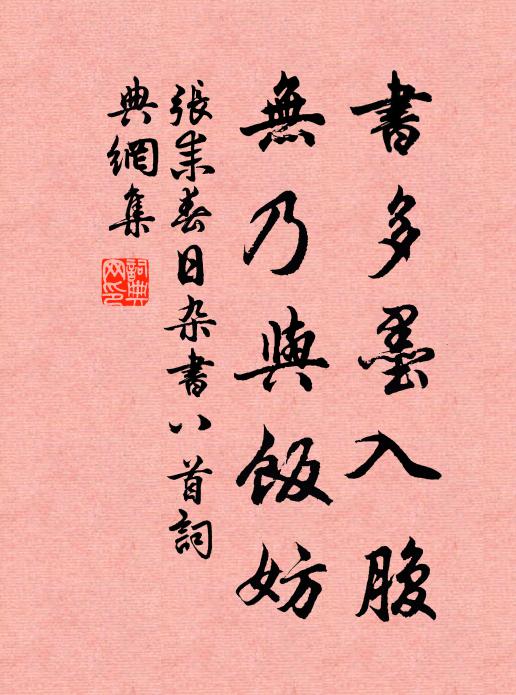 書多墨入腹
無乃與飯妨
張耒春日杂書八首詞
典網集
詞典
网印